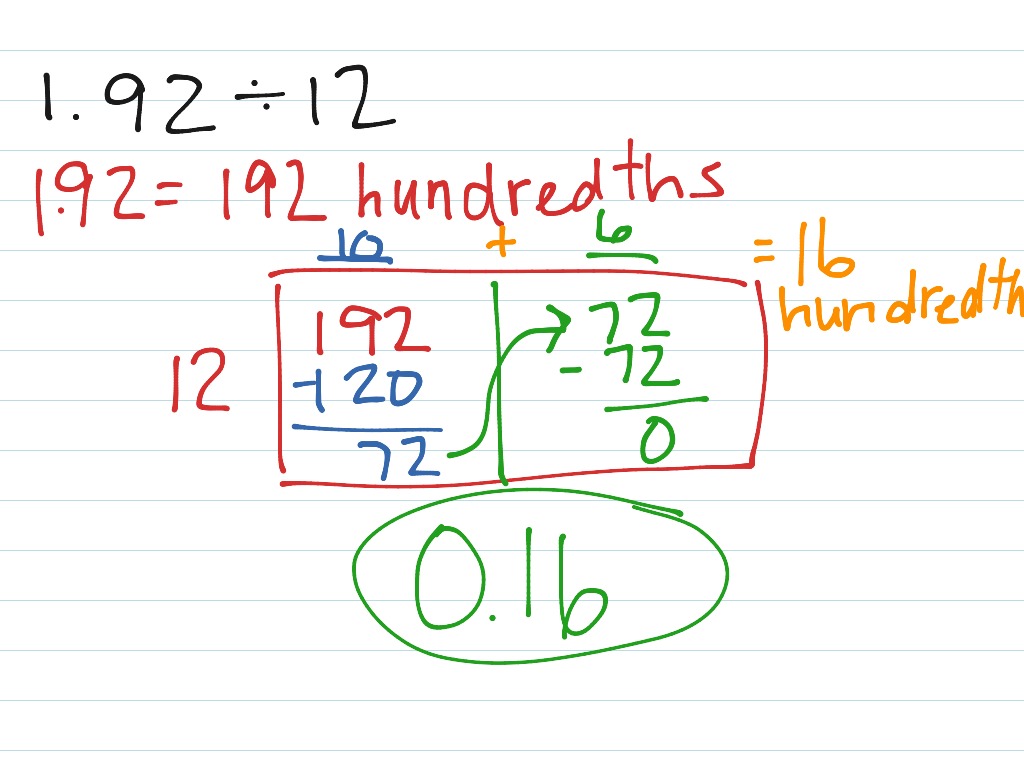 1.92 ÷ 12
1.92 = 192 hundredths
10 + 6 = 16
hundredth
192 72
12 -120 - 72
72 0
0.16